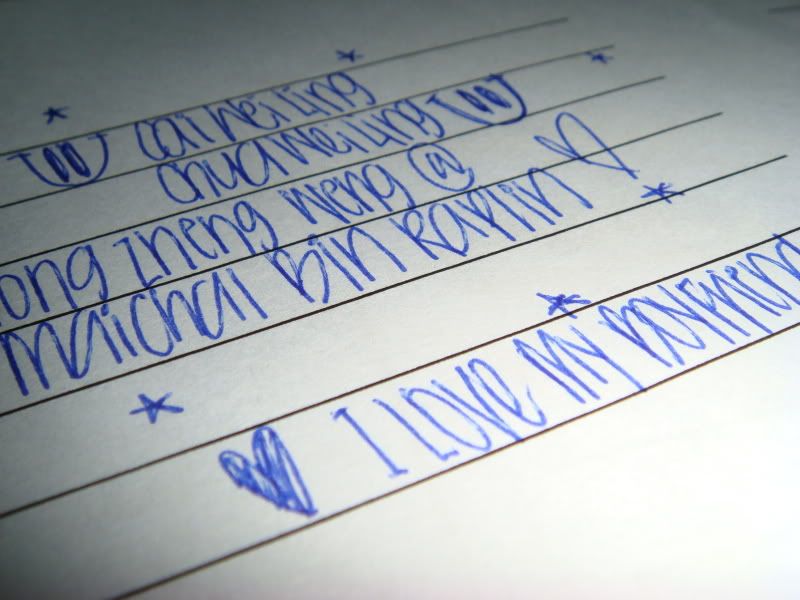 cai wei ling
chua wei ling
ong zheng weng @
maichal bin karlin
I Love my boyfriend